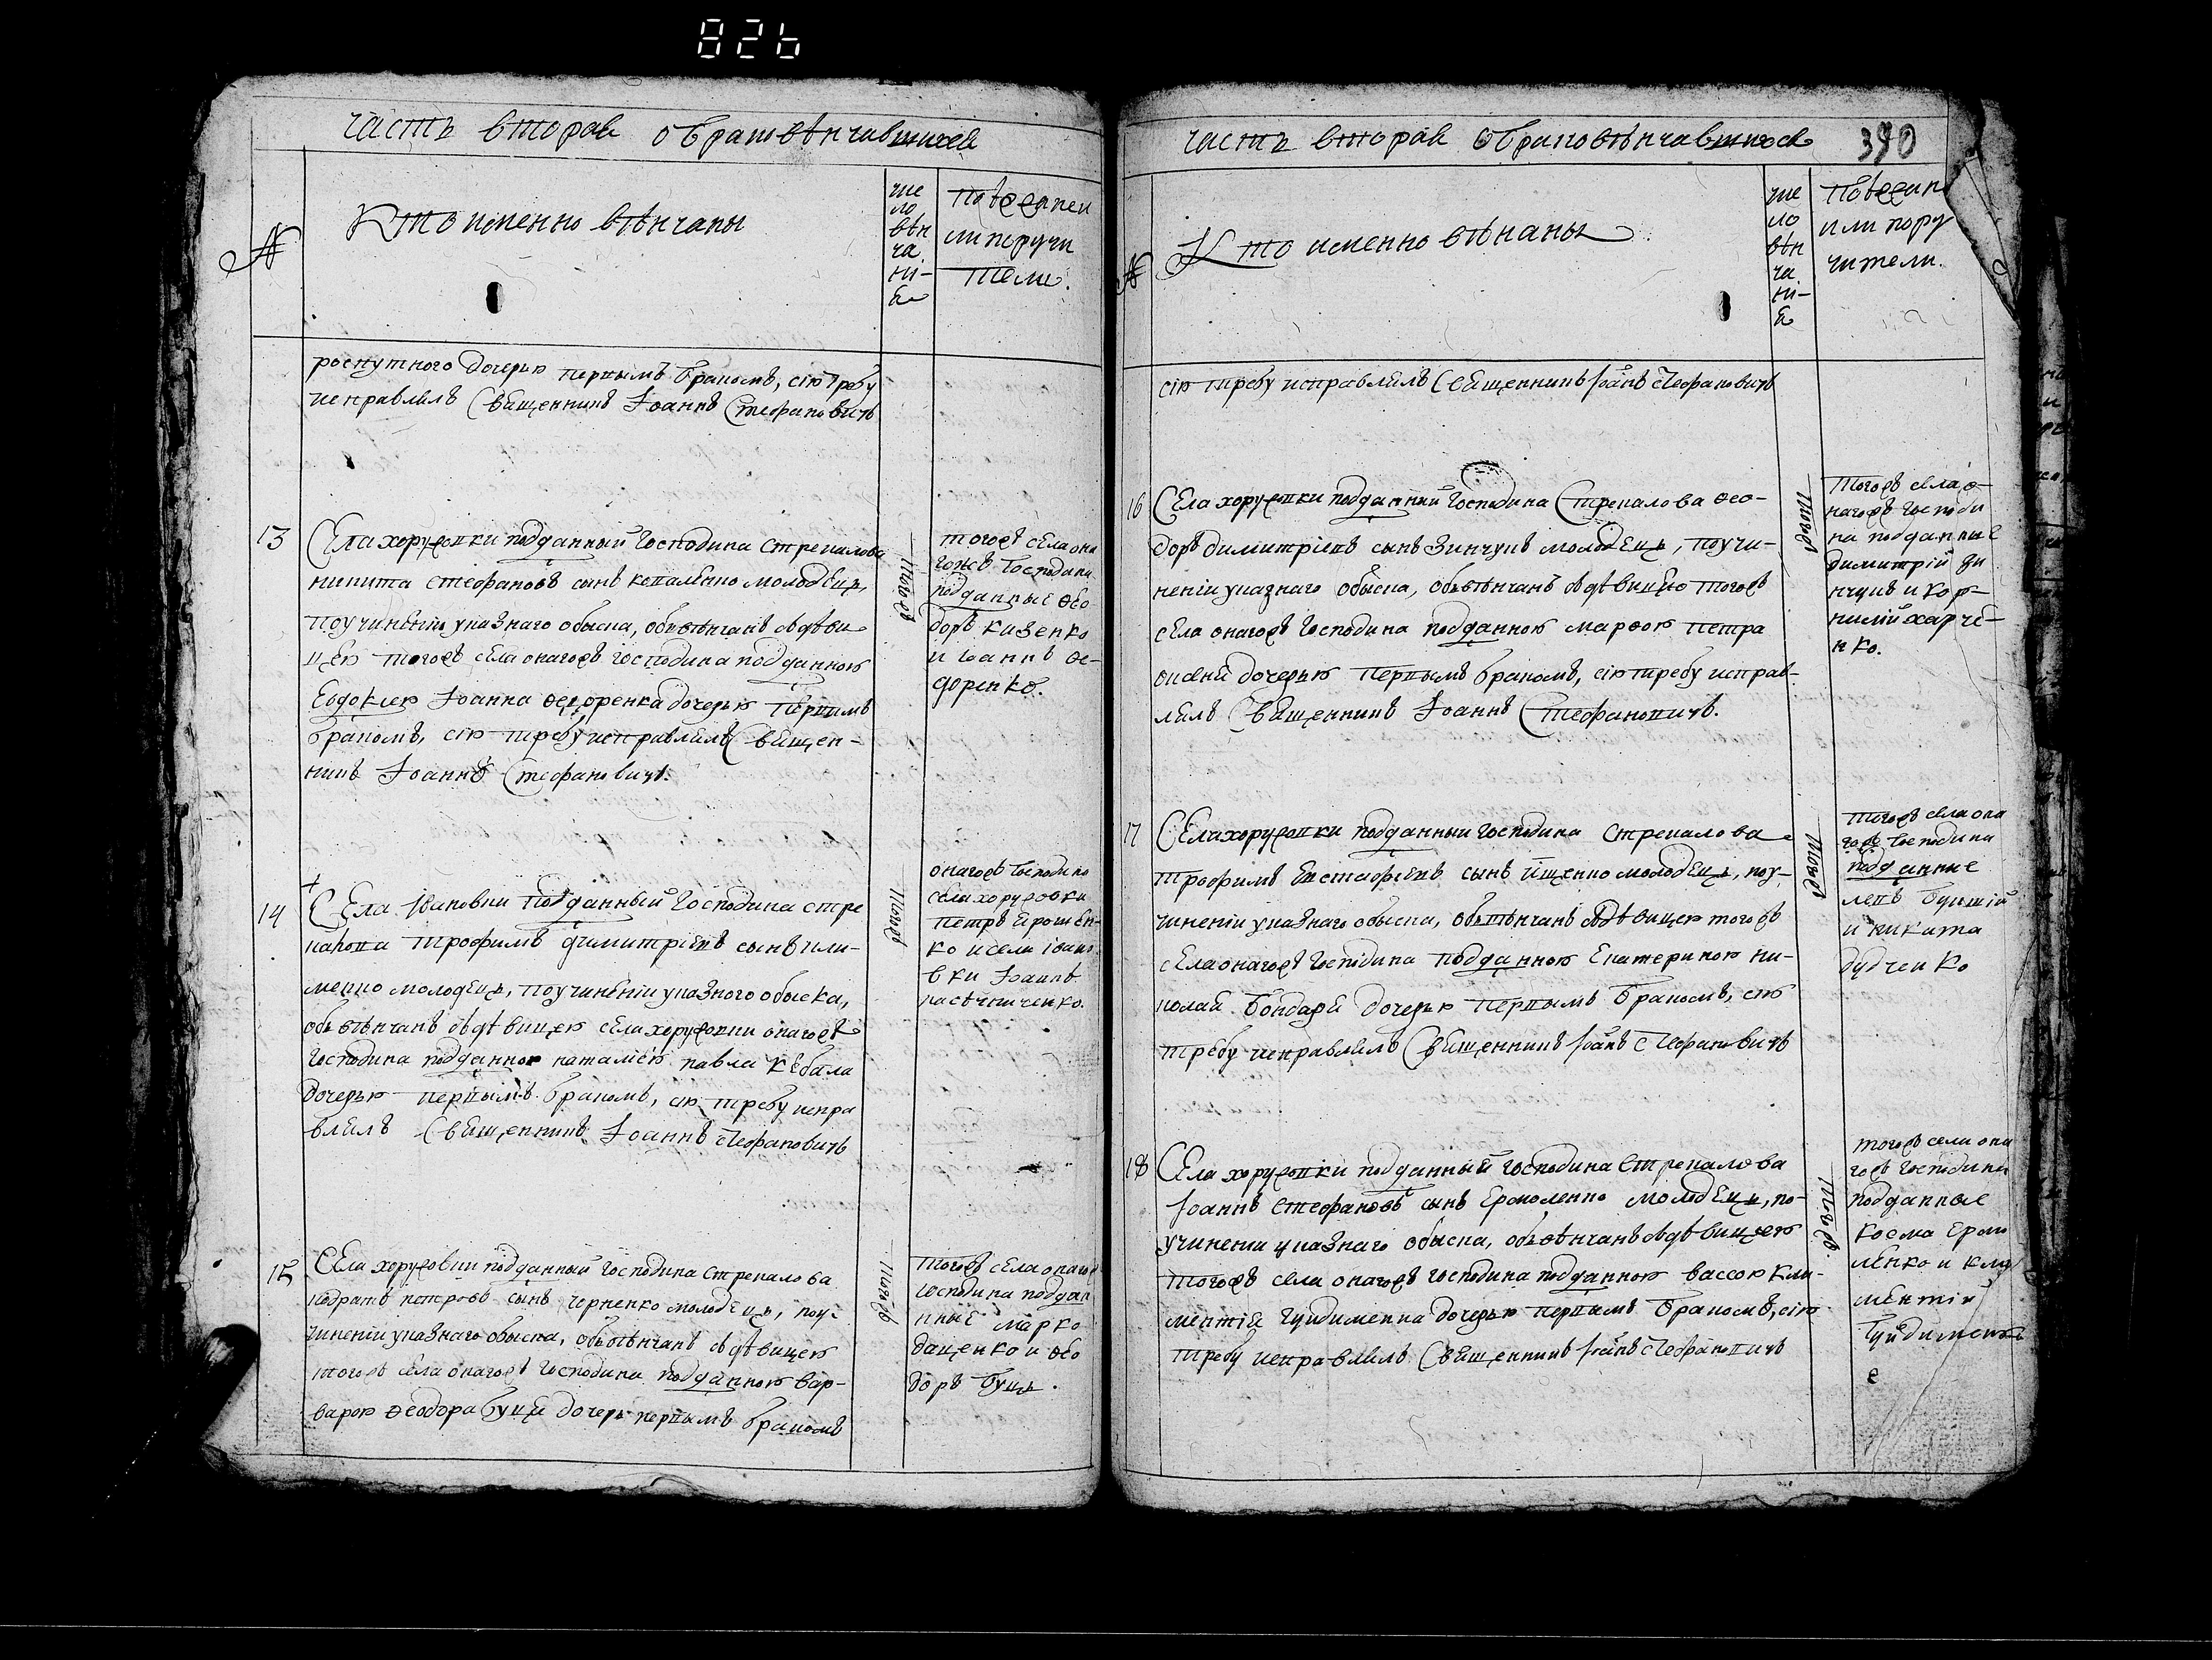 826
часть вторая о бракавѣнчавшихся
№
Кто именно вѣнчаны
чи
сло
вѣн
ча
ні-
е
Поезжен
ли поручи
тели.
роспутного дочерью первымъ бракомъ, сію требу
исправлялъ Священникъ Іоаннъ Стефановичъ
13
Села хоружовки подданный господина Стрекалова
никита стефановъ сынъ коваленко молодецъ,
по учиненіи указнаго обыска, обвѣнчанъ з дѣви
цею тогожъ села онагожъ господина подданною
Евдокиею Іоанна Федоренка дочерью первымъ
бракомъ, сію требу исправлялъ Священ-
никъ Іоаннъ Стефановичъ.
тогожъ села она
гожъ господина
подданные Фео
доръ кизенко
и іоаннъ Фе-
доренко.
14
Села Ивановки подданный господина стре
калова трофимъ димитріевъ сынъ кли-
менко молодецъ, по учиненіи указного обыска,
обвѣнчанъ з дѣвицею села хоружовки онагожъ
господина подданною наталією павла кебала
дочерью первымъ бракомъ, сію требу испра
влялъ Священникъ Іоаннъ Стефановичъ
онагожъ господина
села хоружовки
петръ Ерошен-
ко и села івано
вки Іоаннъ
пасѣчниченко.
15
Села хоружовки подданный господина стрекалова
кодратъ петровъ сынъ черненко молодецъ, по у-
чиненіи указнаго обыска, обвѣнчанъ з дѣвицею
тогожъ села онагожъ господина подданною вар-
варою Феодора Буця дочерью первымъ бракомъ
тогожъ села онагожъ
господина поддан
ные марко
даценко и Фео
доръ Буць.
часть вторая о бракавѣнчавшихся
390
№
Кто именно вѣнаны
чи
сло
вѣн
ча
ні-
е
Поезжан
или пору
чители.
сію требу исправлялъ Священникъ Іоанъ Стефановичъ
16
Села хоружовки подданный господина Стрекалова Фео-
доръ димитріевъ сынъ Зинчукъ молодецъ, по учи-
неніи указнаго обыска, обвѣнчанъ з дѣвицею тогожъ
села онагожъ господина подданною марфою петра
дочерью первымъ бракомъ, сію требу исправ-
лялъ Священникъ Іоаннъ Стефановичъ.
тогожъ села о-
нагожъ господи
на подданные
димитрій зи
нчукъ и кор-
нилий харче-
нко.
17
Села хоружовки подданный господина стрекалова
трофимъ Евстафіевъ сынъ ищенко молодецъ, по у-
чиненіи указнаго обыска, обвѣнчанъ з дѣвицею тогожъ
села онагожъ господина подданною Екатериною ни-
колая Бондаря дочерью первымъ бракомъ, сію
требу исправлялъ Священникъ Іоанъ Стефановичъ
тогожъ села она
гожъ господина
подданные
и никита
дудченко
18
Села хоружовки подданный господина Стрекалова
Іоаннъ Стефановъ сынъ Ермоленко молодецъ, по-
учинении указнаго обыска, обвѣнчанъ з дѣвицею
тогожъ села онагожъ господина подданною вассою кли-
ментія Гуйдименка дочерью первымъ бракомъ, сію
требу исправлялъ Священникъ Іоанъ Стефановичъ
тогожъ села она
гожъ господина
подданные
косма Ермо
ленко и кли
ментій
Гуйдименко